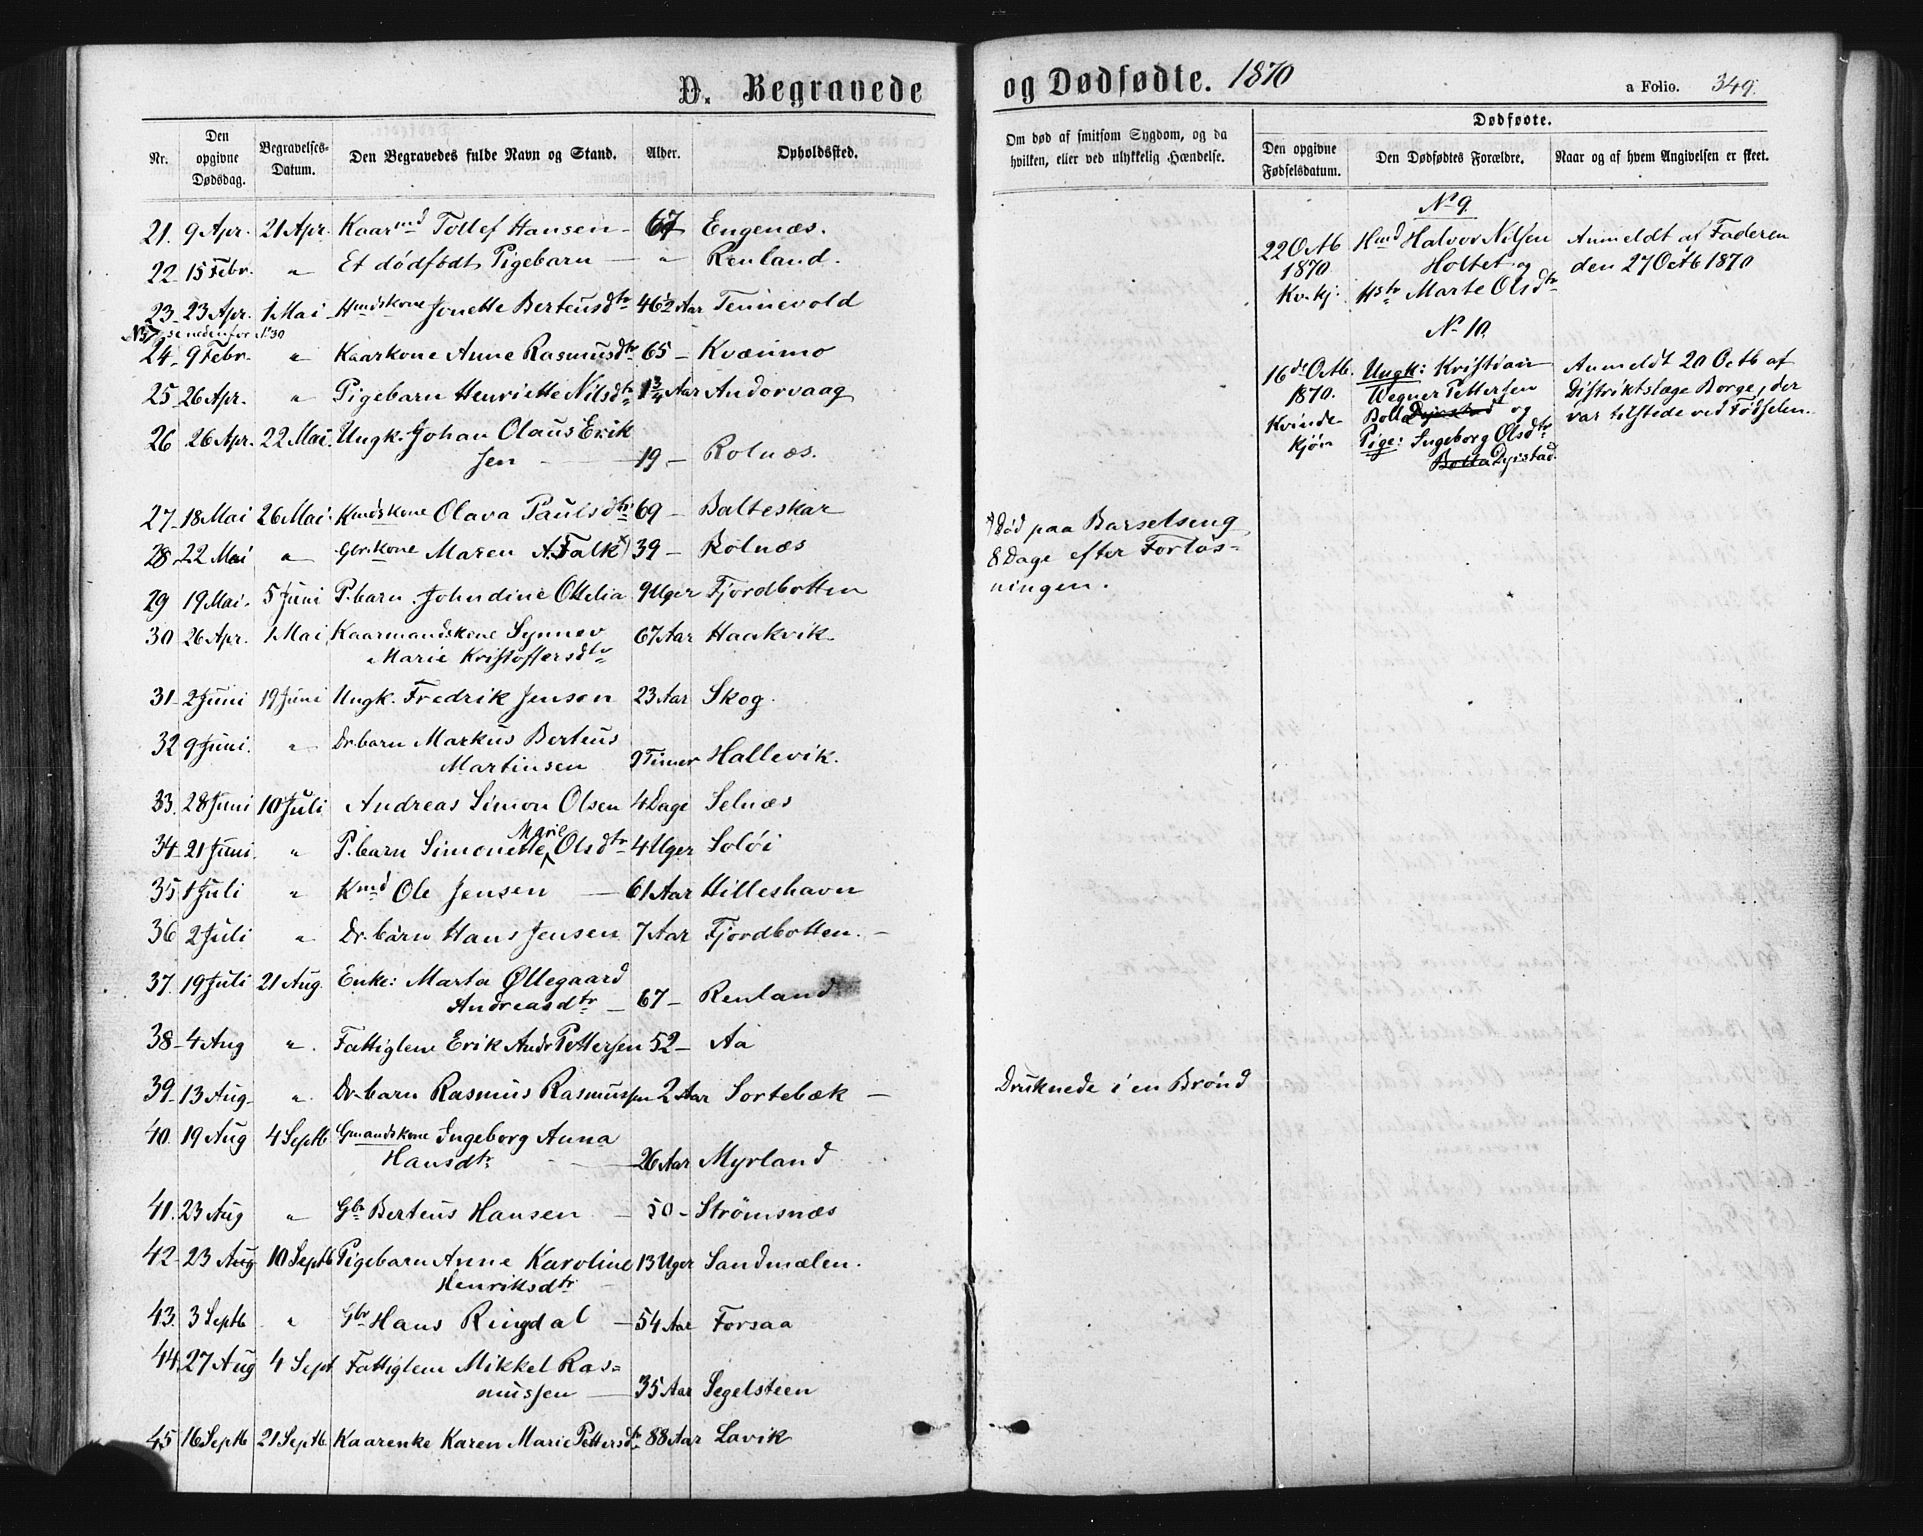 D. Begravede
Nr.
Den opgivne Dødsdag.
Begravelses-Datum.
Den Begravedes fulde Navn og Stand.
Alder.
Opholdssted.
21. 9 Apr. 21 Apr. Kaarmd Tollef Hansen – 67 Engenæs.
22 15 Febr. " Et dødfødt Pigebarn – " Renland.
23 23 Apr. 1 Mai Hmdskone Jonette Berteusdtr 46 1/2 Aar Tennevold
se nedenfor No 30
24 9 Febr. " Kaarkone Anne Rasmusdtr 65 – Kvænmo
25 26 Apr. " Pigebarn Henriette Nilsdtr 1 3/4 Aar Andorvaag
26 26 Apr. 22 Mai Ungk. Johan Olaus Erik
sen – 19 – Rolnæs.
27 18 Mai 26 Mai. Kmdskone Olava Paulsdtr 69 – Balteskar
28 22 Mai " Gbrkone Maren A. Falk x) 39 – Rolnæs
29 19 Mai. 5 Juni P.barn Johndine Ottelia 9 Uger Fjordbotten
30 26 Apr. 1 Mai Kaarmandskone Synnev
Marie Kristoffersdtr 67 Aar Haakvik
31 2 Juni 19 Juni Ungk. Fredrik Jenson 23 Aar Skog.
32 9 Juni. " Dr.barn Markus Berteus
Martinsen 9 Timer Hallevik.
33. 28 Juni 10 Juli Andreas Simon Olsen 4 Dage Selnæs
Marie
34 21 Juni. " P.barn Simonette Olsdtr 4 Uger Soløi
35 1 Juli " Kmd Ole Jensen – 61 Aar Hilleshavn
36 2 Juli " Dr.barn Hans Jensen 7 Aar Fjordbotten. –
37. 19 Juli 21 Aug. Enke: Marta Øllegaard
Andreasdtr – 67 – Renland
38 4 Aug ". Fattiglem Erik Andr Pettersen 52 – Aa
39 13 Aug. " Dr.barn Rasmus Rasmussen 2 Aar Sortebæk –
40. 19 Aug 4 Septb Gmandskone Ingeborg Anna
Hansdtr 26 Aar Myrland
41. 23 Aug " Gbr Berteus Hansen – 50 – Strømsnæs
42 23 Aug 10 Septb Pigebarn Anne Karoline 13 Uger Sandmælen.
Henriksdtr
43. 3 Septb " Gbr Hans Ringdal – 54 Aar Forsaa
44. 27 Aug 4 Sept Fattiglem Mikkel Ras=
mussen – 35 Aar Segelsteen
45 16 Septb 21 Septb. Kaarenke Karen Marie Pettersdtr 88 Aar Lavik
og Dødfødte. 1870
a Folio. 349.
Om død af smitsom Sygdom, og da
hvilken, eller ved ulykkelig Hændelse.
Dødfødte.
Den opgivne Fødselsdatum.
Den Dødfødtes Forældre.
Naar og af hvem Angivelsen er skeet.
No 9.
22 Octb Hmd Halvor Nilsen Anmeldt af Faderen
1870 Holtet og den 27 Octb 1870
Kv.kj. Hstr Marte Olsdtr
No 10.
16de Octb. Ungk: Kristian Anmeldt 20 Octb af
1870. Wegner Pettersen Distriktslæge Borge, der
Kvinde Bolla og var tilstede ved Fødselen.
kjøn Pige: Ingeborg Olsdtr
Bolla Dyistad.
x) Død paa Barselseng
8 Dage efter Forløs=
ningen.
Druknede i en Brønd